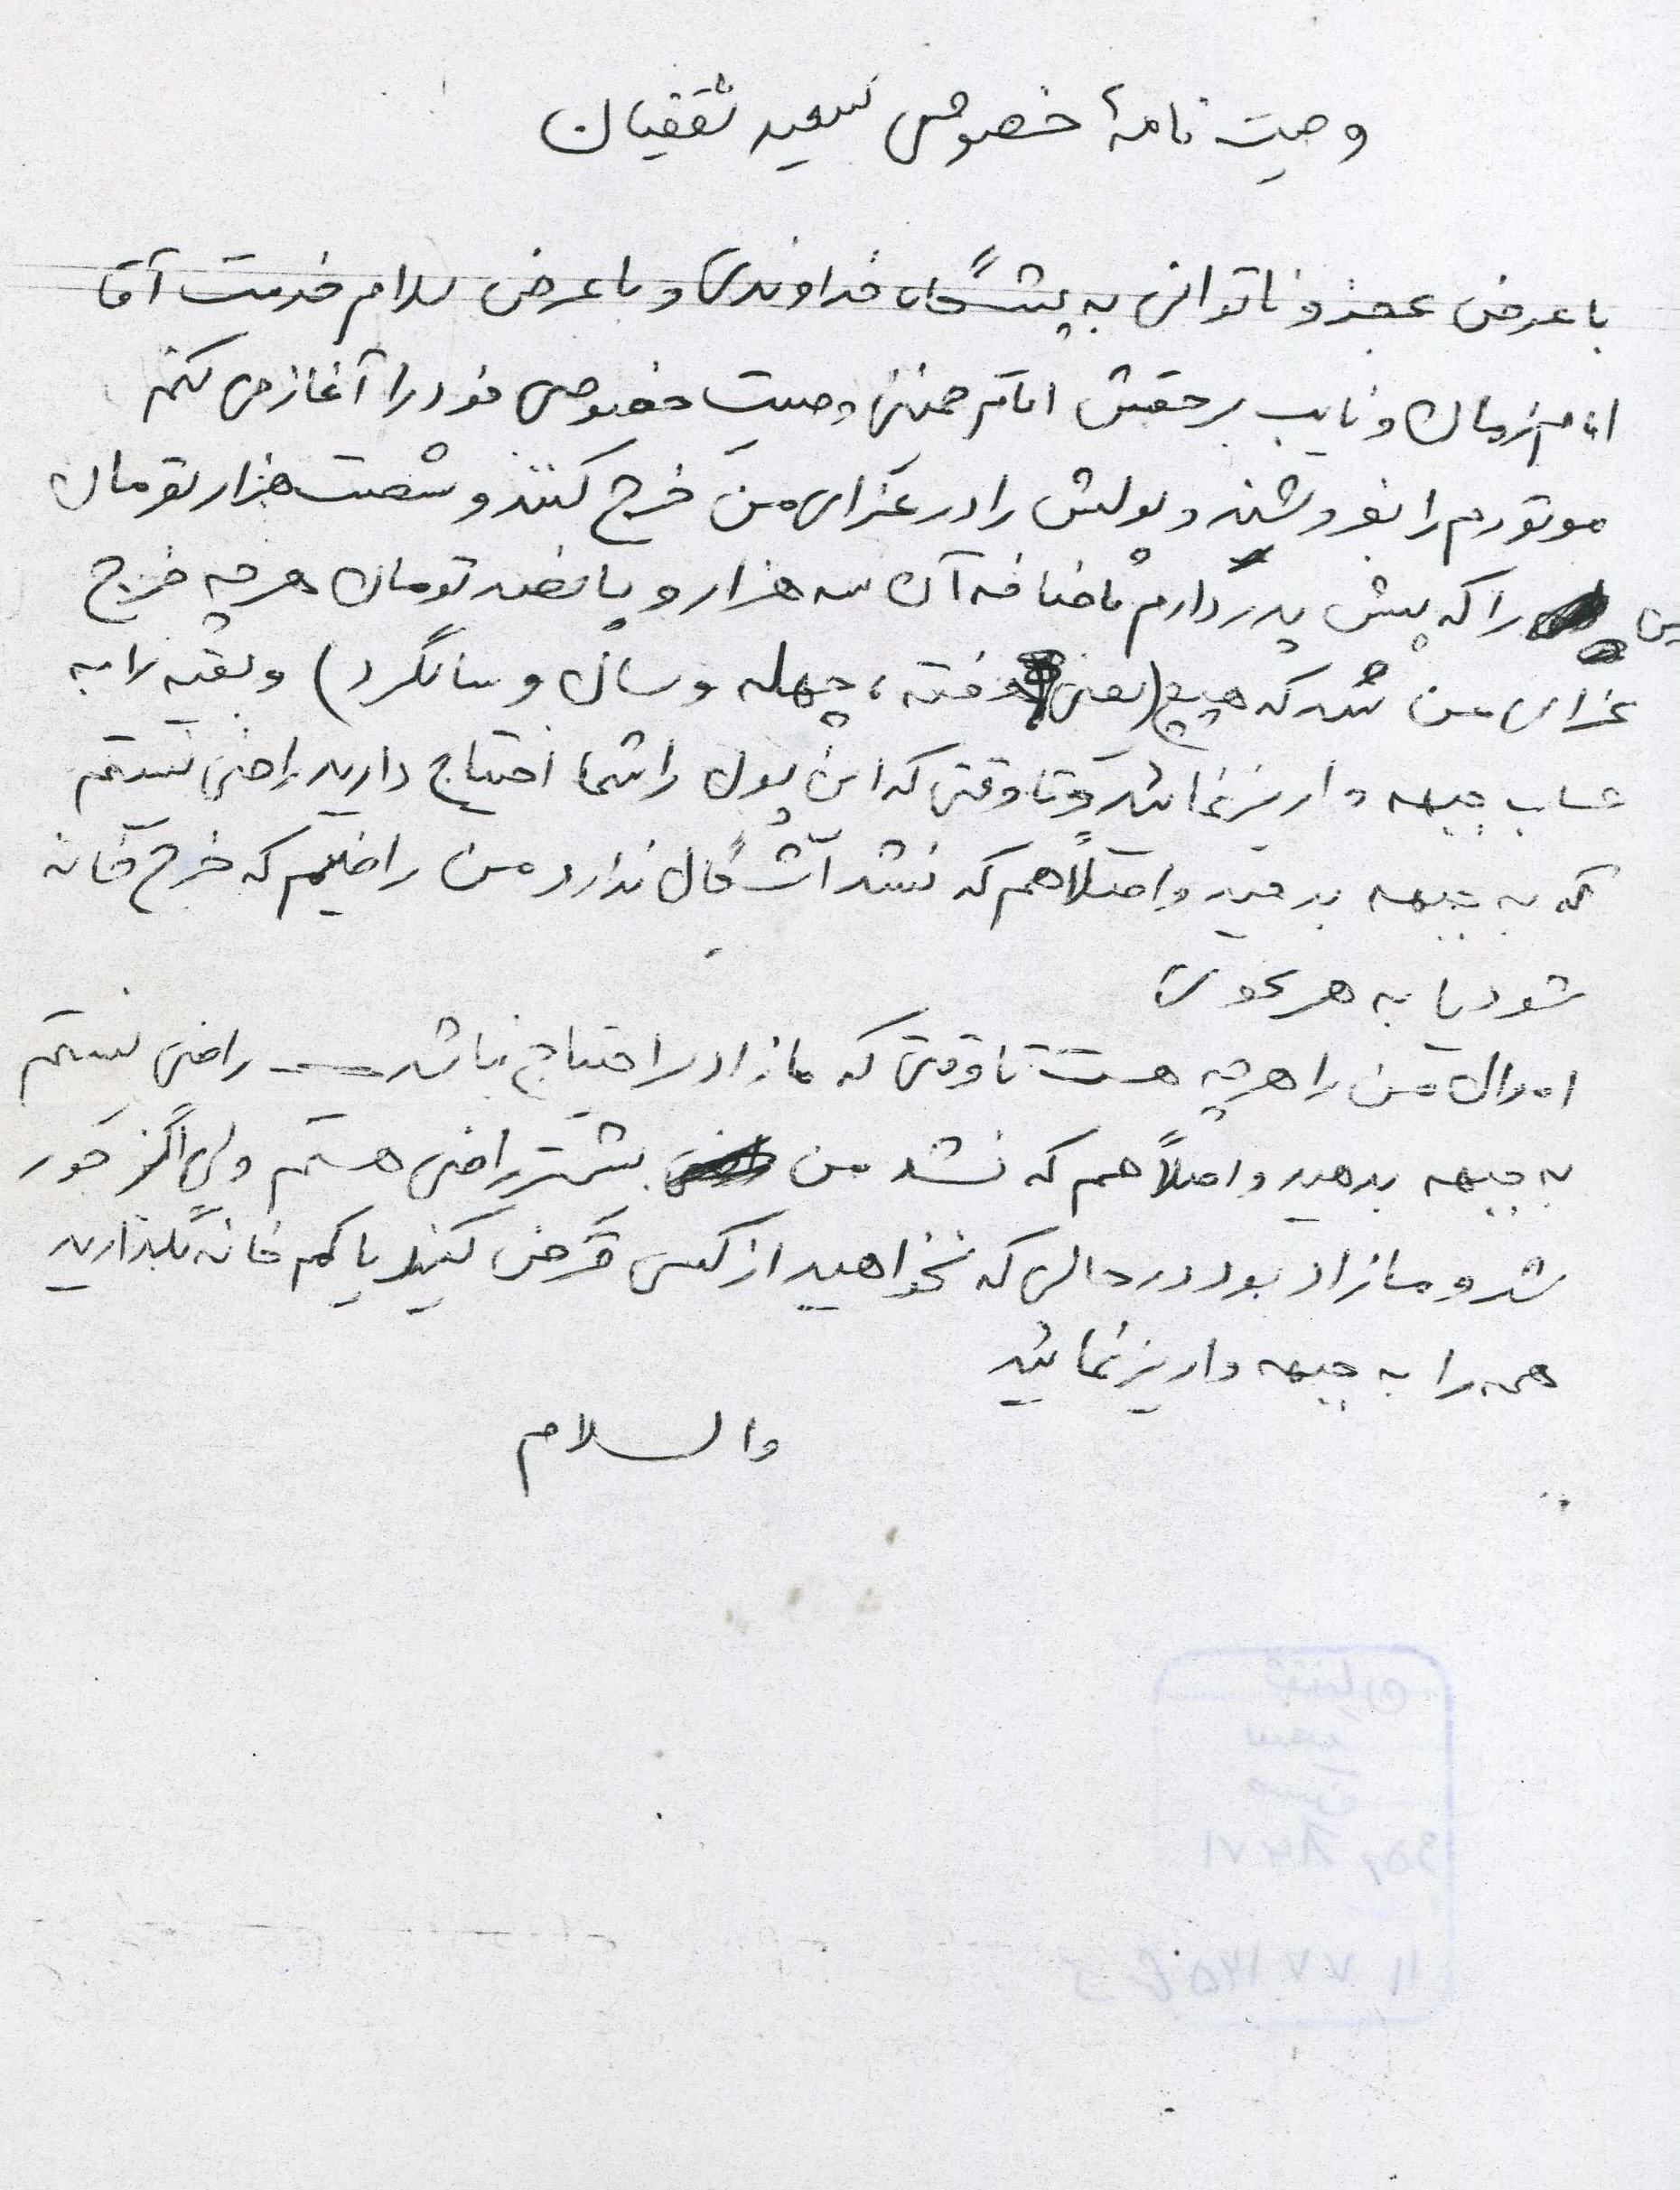 وصیت نامهٔ خصوصی سعید ثقفیان
با عرض عجز و ناتوانی به پیشگاه خداوندی و با عرض سلام خدمت آقا
امام زمان و نایب برحقش امام خمینی وصیت خصوصی خود را آغاز می کنم
موتورم را بفروشند و پولش را در عزای من خرج کنند و شصت هزار تومان
را که پیش پدر دارم باضافه آن سه هزار و پانصد تومان هر چه خرج
عزای من شد که هیچ (یعنی هفته ، چهله و سال و سالگرد) و بقیه را به
حساب جبهه واریز نمائید و تا وقتی که این پول را شما احتیاج دارید راضی نیستم
که به جبهه بدهید و اصلاً هم که نشد اشکال ندارد من راضیم که خرج خانه
شود یا به هر نحوی
اموال من را هر چه هست تا وقتی که مازاد بر احتیاج نباشد راضی نیستم
به جبهه بدهید و اصلاً هم که نشد من بیشتر راضی هستم ولی اگر جور
شد و مازاد بود در حالی که نخواهید از کسی قرض کنید یا کم خانه بگذارید
همه را به جبهه واریز نمائید
والسلام